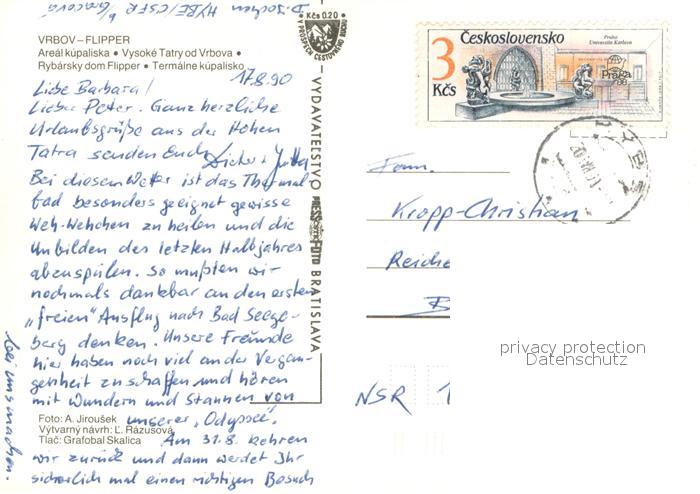 D. Jochen HYBE/ČSFR
Kčs 0.20
V PROSPECH CESTOVNÉHO RUCHU
VRBOV – FLIPPER
Areál kúpaliska • Vysoké Tatry od Vrbova •
Rybársky dom Flipper • Termálne kúpalisko
17.8.90
Liebe Barbara!
Lieber Peter. Ganz herzliche
Urlaubsgrüße aus der Hohen
Tatra senden Euch Dieter + Jutta
Bei diesem Wetter ist das Thermal
bad besonders geeignet gewisse
Weh-Wehchen zu heilen und die
Unbilden des letzten Halbjahres
abzuspülen. So mußten wir
nochmals dankbar an den ersten
„freien" Ausflug nach Bad Seege-
berg denken. Unsere Freunde
hier haben noch viel an der Vergan-
genheit zu schaffen und hören
mit Wundern und Staunen von
unserer „Odyssee".
Am 31.8. kehren
wir zurück und dann werdet Ihr
sicherlich mal einen richtigen Besuch
bei uns machen.
Foto: A. Jiroušek
Výtvarný návrh: Ľ. Rázusová
Tlač: Grafobal Skalica
VYDAVATEĽSTVO PRESSFOTO BRATISLAVA
Československo
3
Kčs
Praha
Univerzita Karlova
Praga
88
Fam.
Kropp-Christian
Reiche
B
NSR 1
privacy protection
Datenschutz